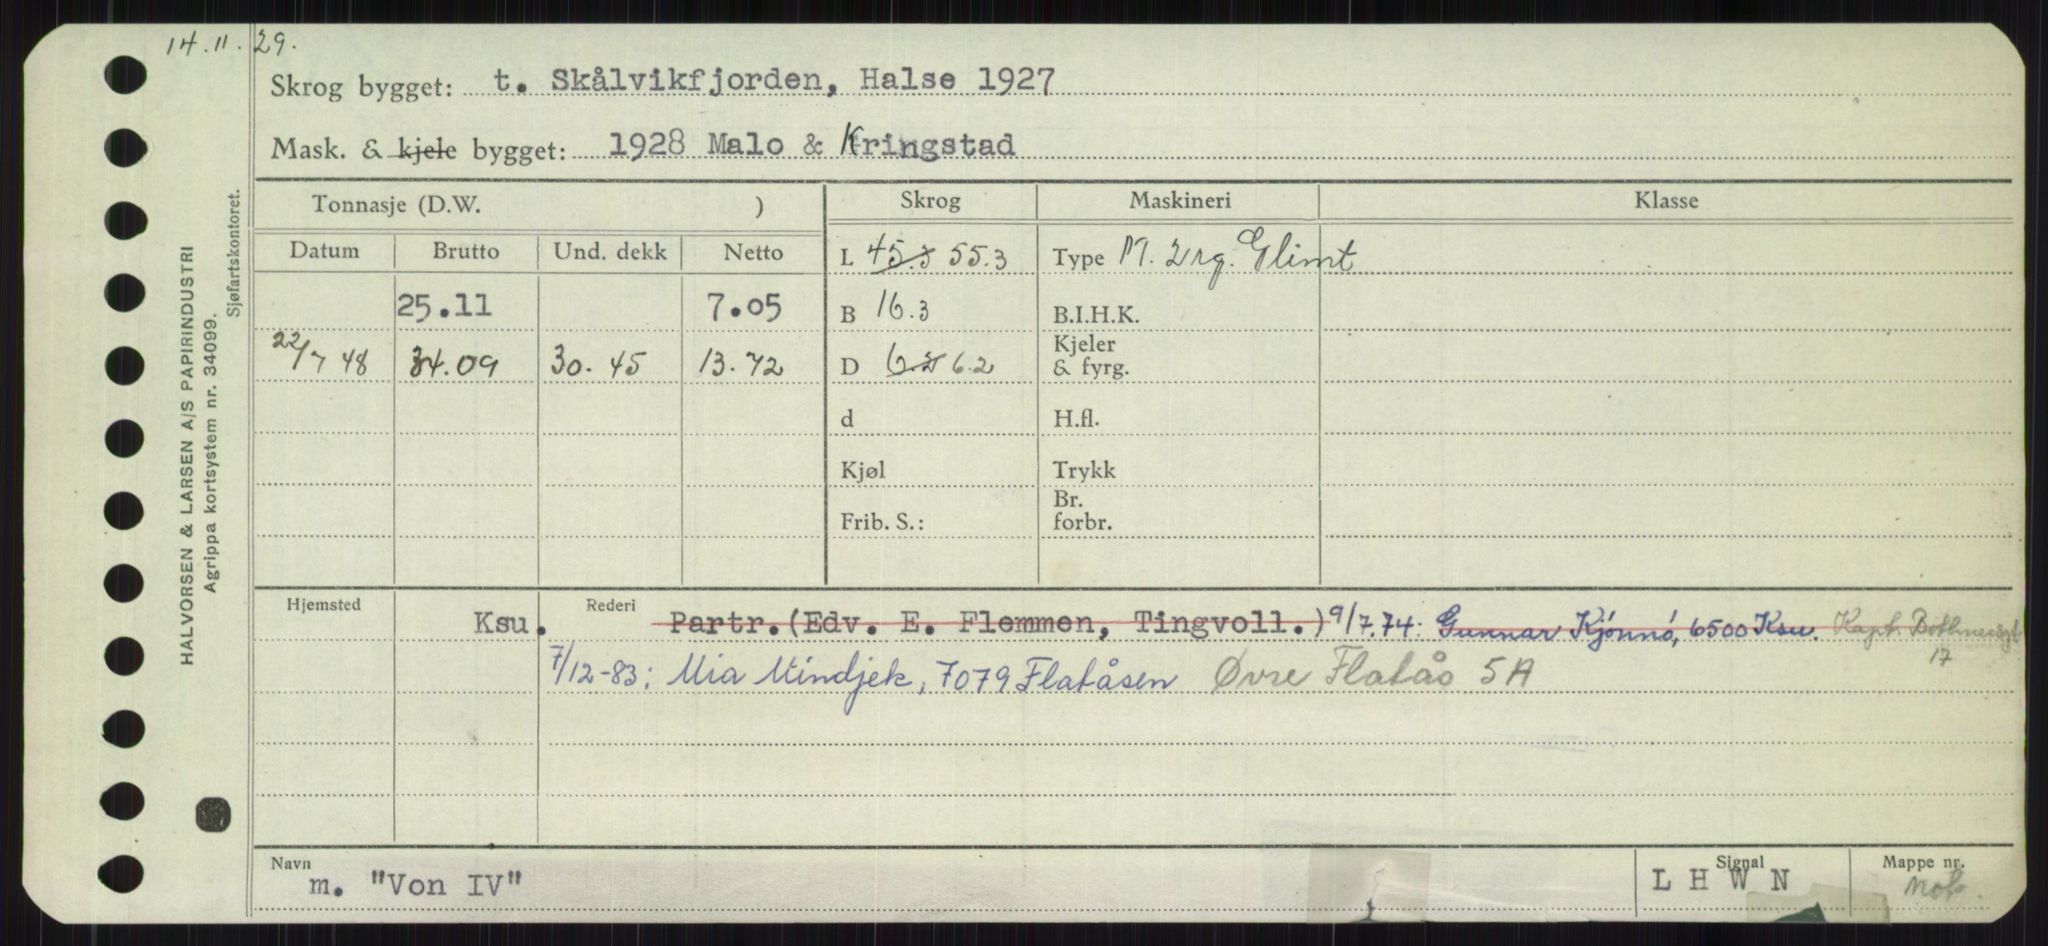 14.11.29.
Skrog bygget: t. Skålvikfjorden, Halse 1927
Mask. & kjele bygget: 1928 Malo & Kringstad
Tonnasje (D.W. ) Skrog Maskineri Klasse
Datum Brutto Und. dekk Netto L 45.5 55.3 Type M. 2 Glimt
25.11 7.05 B 16.3 B.I.H.K.
22/7 48 34.09 30.45 13.72 D 6.2 Kjeler & fyrg.
d H.fl.
Kjøl Trykk
Frib. S.: Br. forbr.
Hjemsted Rederi
Ksu. Partr. (Edv. E. Flemmen, Tingvoll.) 9/7.74. Gunnar Kjønnø, 6500 Ksu. Kapt.
17
7/12-83: Mia Mindjek, 7079 Flatåsen Øvre Flatås 5A
Navn Signal Mappe nr.
m. "Von IV" L H W N
HALVORSEN & LARSEN A/S PAPIRINDUSTRI
Agrippa kortsystem nr. 34099.
Sjøfartskontoret.